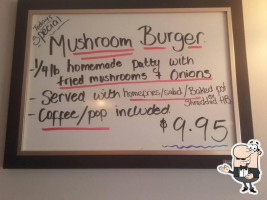 Today's
Special
Mushroom Burger
-1/4 lb homemade patty with
fried mushrooms & Onions
- Served with homefries/salad/Baked pot
or Shredded HB's
- Coffee/pop included
$9.95